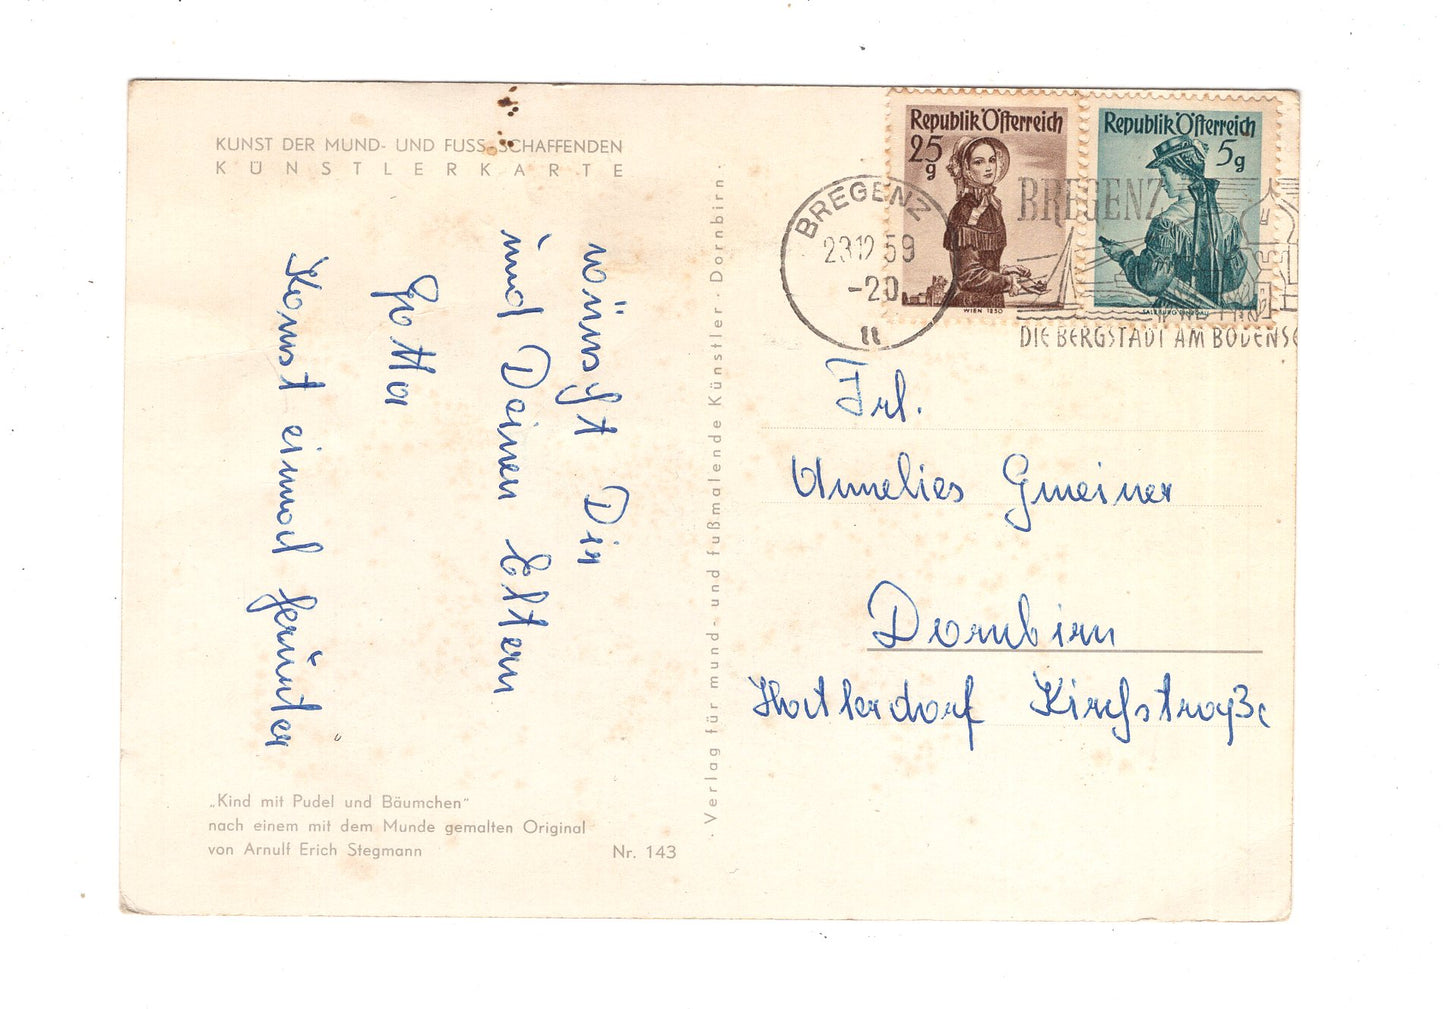 KUNST DER MUND- UND FUSS-SCHAFFENDEN
KÜNSTLERKARTE
wünscht Dir
und Deinen Eltern
Gotta
Komst einmal herunter
„Kind mit Pudel und Bäumchen"
nach einem mit dem Munde gemalten Original
von Arnulf Erich Stegmann
Nr. 143
· Verlag für mund- und fußmalende Künstler · Dornbirn ·
Republik Österreich
25 g
WIEN 1850
Republik Österreich
5 g
BREGENZ
23.12.59
-20
BREGENZ
DIE BERGSTADT AM BODENSE
Frl.
Annelies Gmeiner
Dornbirn
Hatlerdorf Kirchstraße